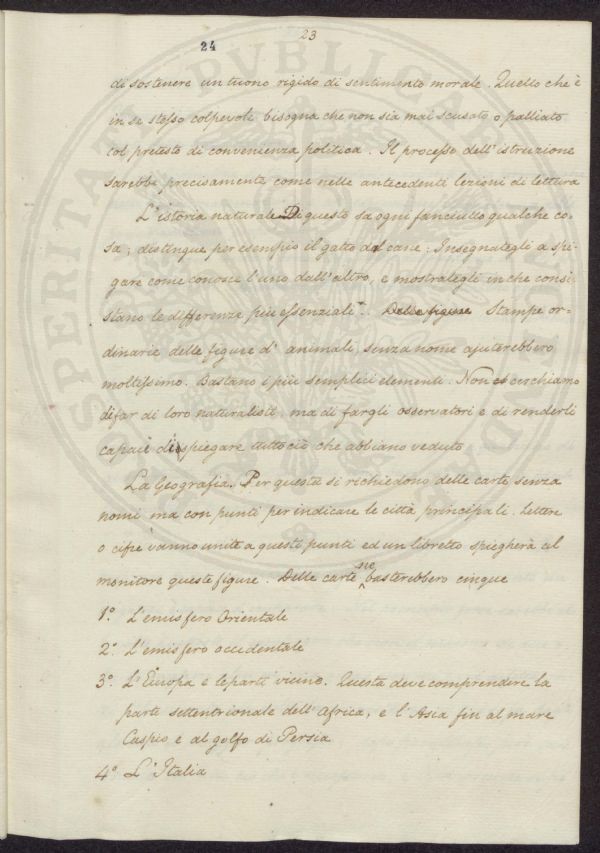 23
24
di sostenere un tuono rigido di sentimento morale. Quello che è
in se stesso colpevole bisogna che non sia mai scusato o palliato
col pretesto di convenienza politica. Il processo dell'istruzione
sarebbe precisamente come nelle antecedenti lezioni di lettura
L'istoria naturale Di questo sa ogni fanciullo qualche co-
sa; distingue per esempio il gatto dal cane: Insegnategli a spie-
gare come conosce l'uno dall'altro, e mostrategli in che consi-
stano le differenze più essenziali. Delle figure Stampe or-
dinarie delle figure d'animali senza nome ajuterebbero
moltissimo. Bastano i più semplici elementi. Non cerchiamo
di far di loro naturalisti, ma di fargli osservatori e di renderli
capaci di spiegare tutto ciò che abbiano veduto
La Geografia. Per questa si richiedono delle carte senza
nomi ma con punti per indicare le città principali. Lettere
o cifre vanno unite a questi punti ed un libretto spiegherà al
monitore queste figure. Delle carte ne basterebbero cinque
1.° L'emisfero Orientale
2.° L'emisfero occidentale
3.° L'Europa e le parti vicine. Questa deve comprendere la
parte settentrionale dell'Africa, e l'Asia fin al mare
Caspio e al golfo di Persia
4.° L'Italia